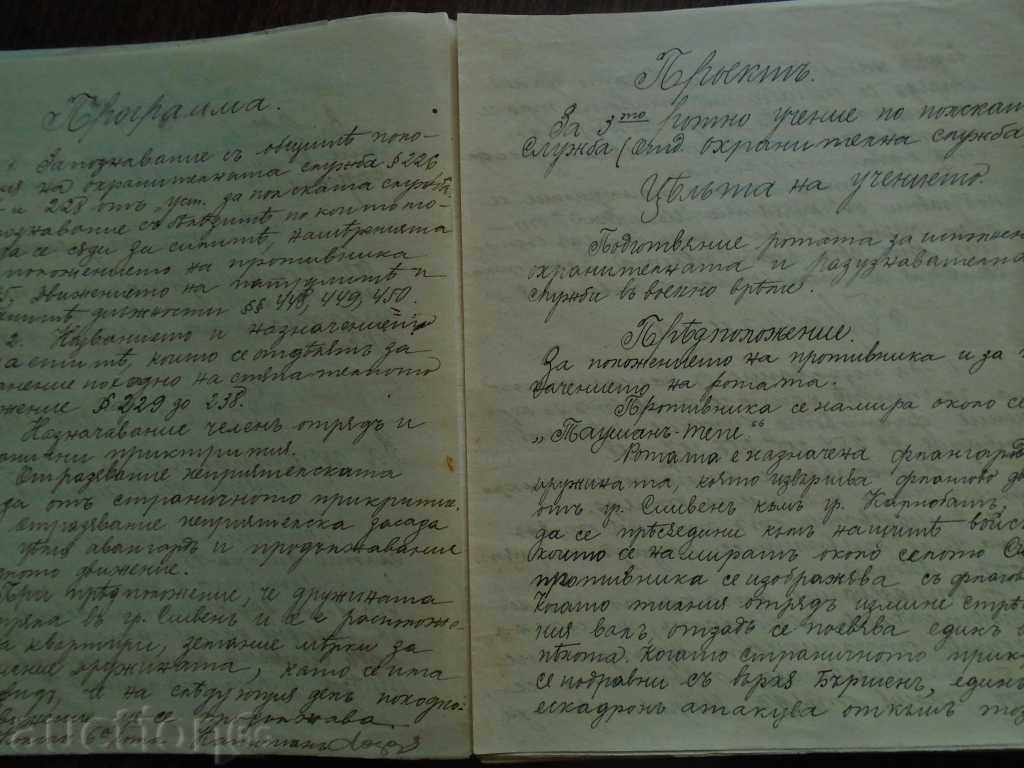 Программа.
Запознаване съ общитѣ поло-
ния на охранителната служба § 226
и 228 отъ уст. да полската служба.
по които то-
ва се сѫди да силитѣ, намѣренията
положението на противника
движението на патрулитѣ и
должности §§ 448, 449, 450.
2. Названието и назначението
частитѣ, които се отдѣлятъ за
походно настѫпателното
жение § 229 до 238.
Назначаване челенъ отрядъ и
прикрития.
Отразяване неприятелската
да отъ страничното прикритие.
Отразяване неприятелска засада
цѣлия авангардъ и продължавание
ното движение.
При предположение, че дружината
въ гр. Сливенъ и се е расположе-
на квартири, земание мѣрки за
дружината, като се има
че на следующия день походно-
се продължава
Капитанъ
Проектъ.
За 3то ротно учение по полскат
служба (отд. охранителна служба
Цѣльта на учението.
Подготвяние ротата за
охранителната и разузнавателна
служби въ военно врѣме.
Прѣдположение.
За положението на противника и за
начението на ротата.
Противника се намира около се
„Таушанъ-тепе“
Ротата е назначена флангардъ
дружината, която извършва флангово дв
отъ гр. Сливенъ къмъ гр. Карнобатъ,
да се прѣсъедини къмъ нашитѣ войс
които се намиратъ около селото Си
противника се изображява съ флагов
Когато тилния отрядъ измине стрѣ
ния валъ, отзадъ се появява единъ
пѣхота. Когато страничното прик
се подравни съ върха Бършенъ, единъ
ескадронъ атакува откъмъ тоз
auction